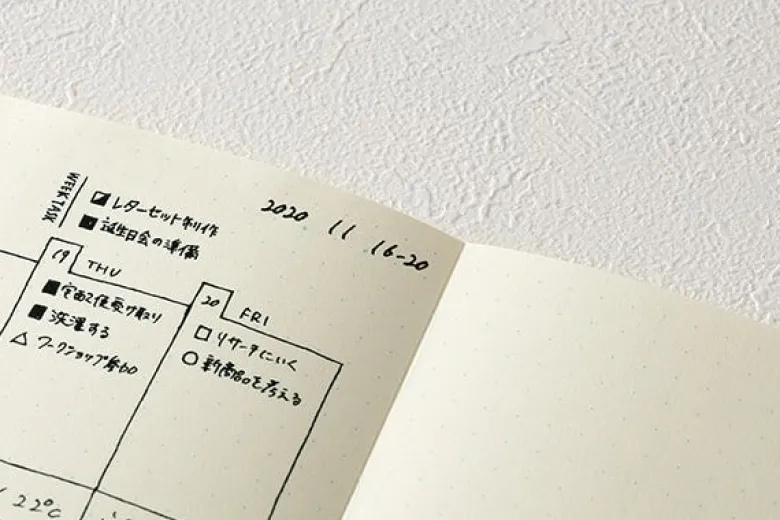 WEEK TASK
レターセット制作
誕生日会の準備
2020 11 16-20
19 THU
宅配便受け取り
洗濯する
ワークショップ参加
20 FRI
リサーチにいく
新商品を考える
22℃